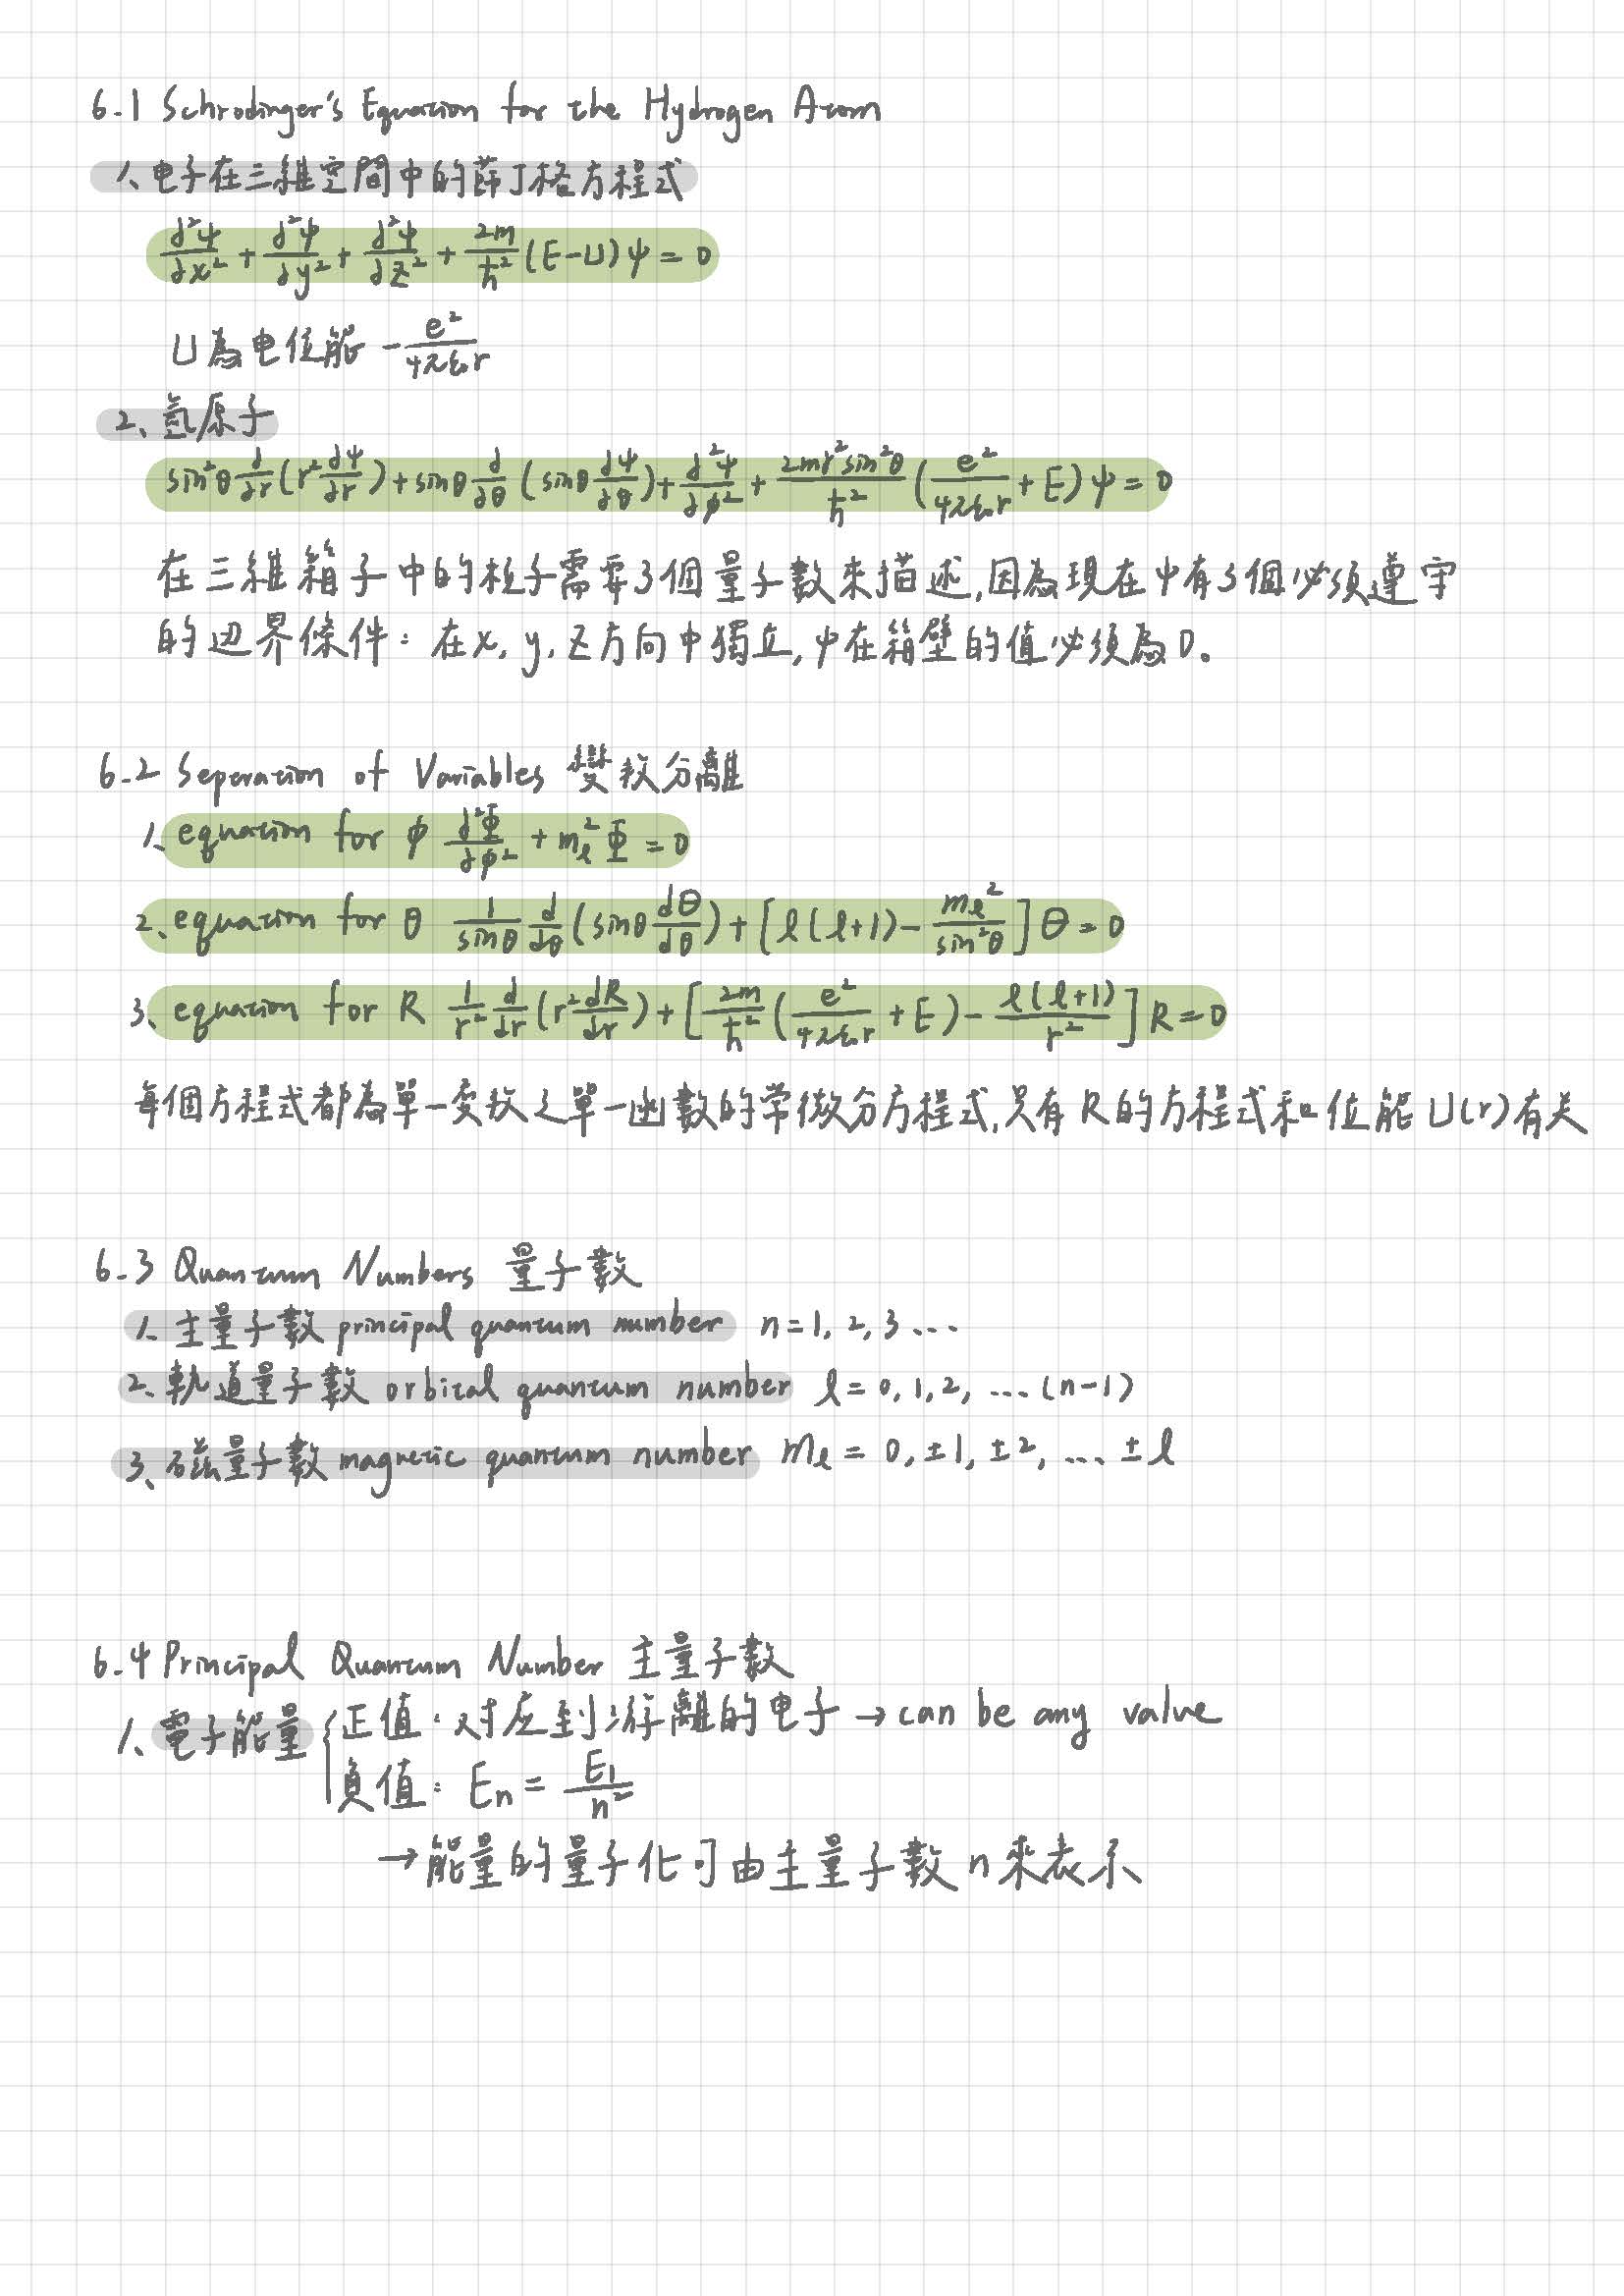 6-1 Schrodinger's Equation for the Hydrogen Atom
1、电子在三維空間中的薛丁格方程式
∂²ψ/∂x² + ∂²ψ/∂y² + ∂²ψ/∂z² + 2m/ħ² (E-U)ψ = 0
U為电位能 -e²/4πε₀r
2、氫原子
sin²θ ∂/∂r (r² ∂ψ/∂r) + sinθ ∂/∂θ (sinθ ∂ψ/∂θ) + ∂²ψ/∂φ² + 2mr²sin²θ/ħ² (e²/4πε₀r + E)ψ = 0
在三維箱子中的粒子需要3個量子數來描述,因為現在ψ有3個必須遵守
的边界條件：在x, y, z方向中獨立,ψ在箱壁的值必須為0。
6-2 Seperation of Variables 變数分離
1、equation for φ d²Φ/dφ² + mₗ²Φ = 0
2、equation for θ 1/sinθ d/dθ (sinθ dΘ/dθ) + [l(l+1) - mₗ²/sin²θ]Θ = 0
3、equation for R 1/r² d/dr (r² dR/dr) + [2m/ħ² (e²/4πε₀r + E) - l(l+1)/r²]R = 0
每個方程式都為單一变数之單一函數的常微分方程式,只有R的方程式和位能U(r)有关
6-3 Quantum Numbers 量子數
1、主量子數 principal quantum number n=1, 2, 3 ...
2、軌道量子數 orbital quantum number l = 0, 1, 2, ... (n-1)
3、磁量子數 magnetic quantum number mₗ = 0, ±1, ±2, ... ±l
6-4 Principal Quantum Number 主量子數
1、電子能量 { 正值：对应到游離的电子 → can be any value
負值：Eₙ = E₁/n²
→ 能量的量子化可由主量子數n來表示